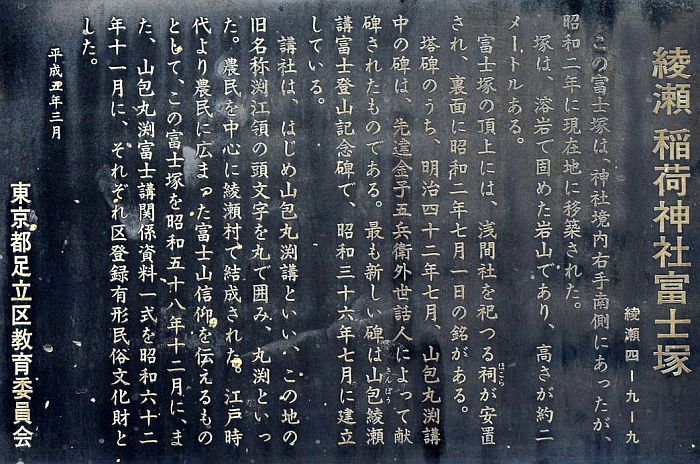 綾瀬 稲荷神社富士塚
綾瀬四ー九ー九
この富士塚は、神社境内右手南側にあったが、
昭和二年に現在地に移築された。
塚は、溶岩で固めた岩山であり、高さが約二
メートルある。
富士塚の頂上には、浅間社を祀つる祠が安置
ほこら
され、裏面に昭和二年七月一日の銘がある。
塔碑のうち、明治四十二年七月、山包丸渕講
中の碑は、先達金子五兵衛外世話人によって献
碑されたものである。最も新しい碑は山包綾瀬
さんぽう
講富士登山記念碑で、昭和三十六年七月に建立
している。
講社は、はじめ山包丸渕講といい、この地の
旧名称渕江領の頭文字を丸で囲み、丸渕といっ
た。農民を中心に綾瀬村で結成された。江戸時
代より農民に広まった富士山信仰を伝えるもの
として、この富士塚を昭和五十八年十二月に、ま
た、山包丸渕富士講関係資料一式を昭和六十二
年十一月に、それぞれ区登録有形民俗文化財と
した。
平成五年三月
東京都足立区教育委員会